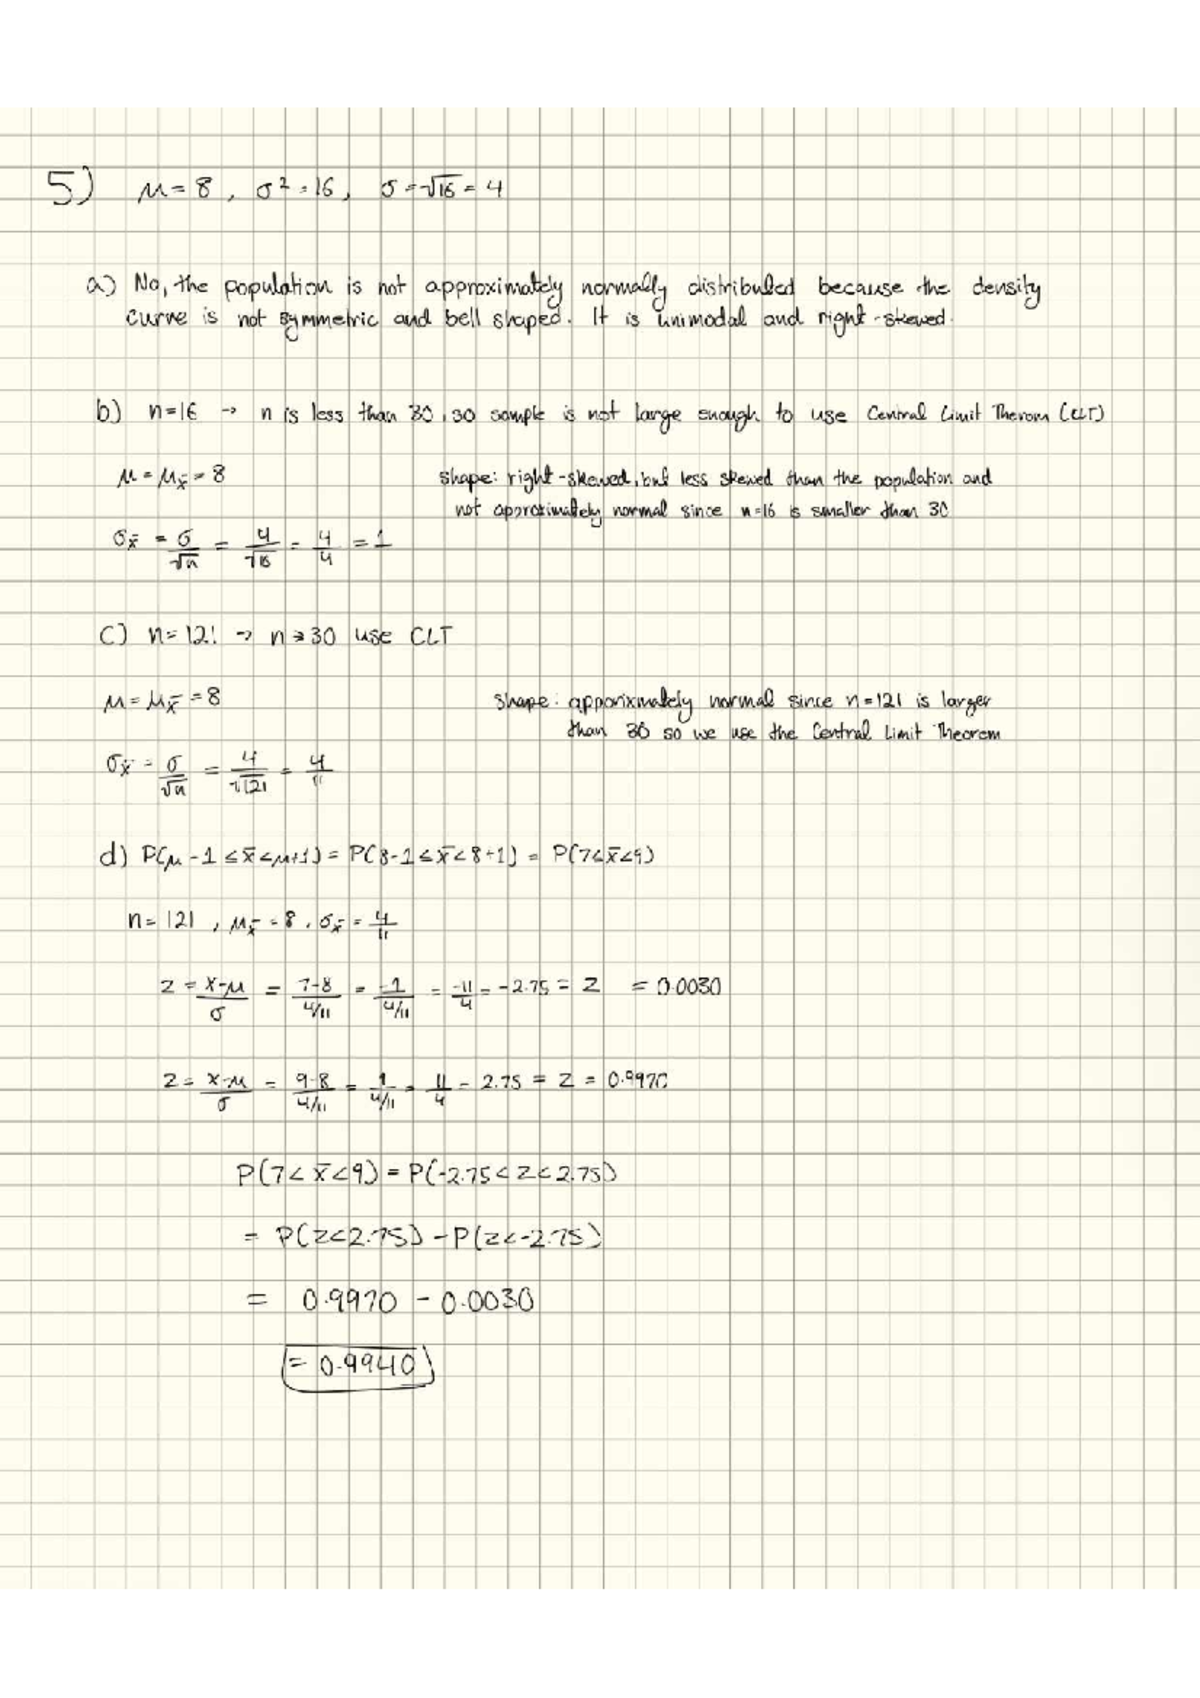 5) μ = 8 , σ² = 16 , σ = √16 = 4
a) No, the population is not approximately normally distributed because the density
curve is not symmetric and bell shaped. It is unimodal and right-skewed.
b) n=16 → n is less than 30, so sample is not large enough to use Central Limit Therom (CLT)
μ = μx̄ = 8
shape: right-skewed, but less skewed than the population and
not approximately normal since n=16 is smaller than 30
σx̄ = σ/√n = 4/√16 = 4/4 = 1
c) n = 121 → n ≥ 30 use CLT
μ = μx̄ = 8
shape: apporiximately normal since n=121 is larger
than 30 so we use the Central Limit Theorem
σx̄ = σ/√n = 4/√121 = 4/11
d) P(μ - 1 ≤ x̄ < μ+1) = P(8-1 ≤ x̄ < 8+1) = P(7<x̄<9)
n = 121 , μx̄ = 8 , σx̄ = 4/11
z = x-μ/σ = 7-8/4/11 = -1/4/11 = -11/4 = -2.75 = z = 0.0030
z = x-μ/σ = 9-8/4/11 = 1/4/11 = 11/4 = 2.75 = z = 0.9970
P(7 < x̄ < 9) = P(-2.75 < z < 2.75)
= P(z<2.75) - P(z<-2.75)
= 0.9970 - 0.0030
= 0.9940